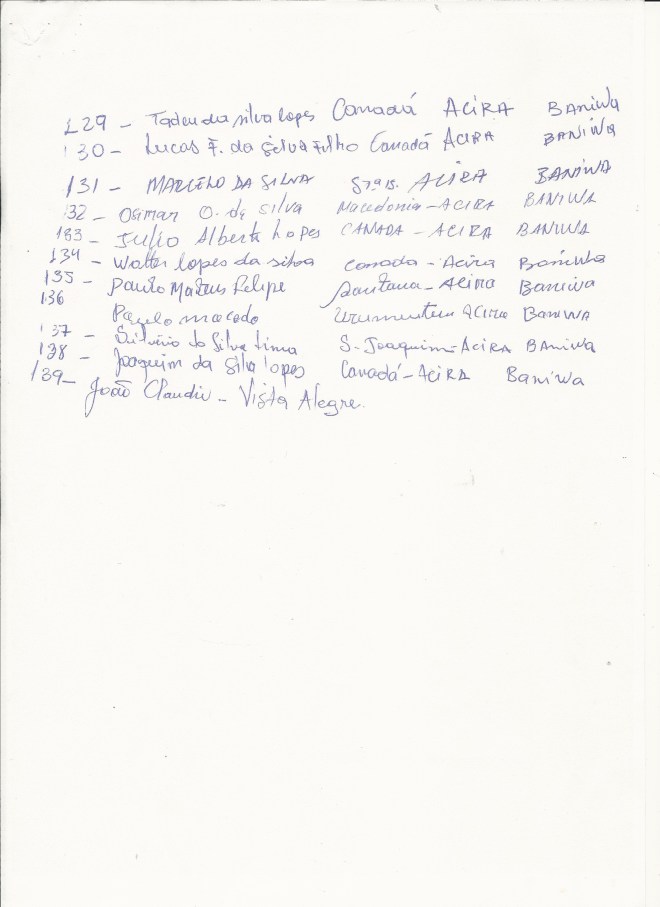 129 - Tadeu da silva lopes Canadá ACIRA BANIWA
130 - Lucas F. da Silva Filho Canadá ACIRA BANIWA
131 - MARCELO DA SILVA ACIRA BANIWA
132 - Osimar O. da Silva Macedonia - ACIRA BANIWA
133 - Julio Alberto Lopes CANADA - ACIRA BANIWA
134 - Walter lopes da silva Canada - Acira Baniwa
135 - Paulo Mateus Felipe Santana - Acira Baniwa
136 macedo Acira BANIWA
137 - Silvério da Silva Lima S. Joaquim - ACIRA BANIWA
138 - Joaquim da Silva lopes Canadá - ACIRA Baniwa
139 - João Claudio - Vista Alegre.